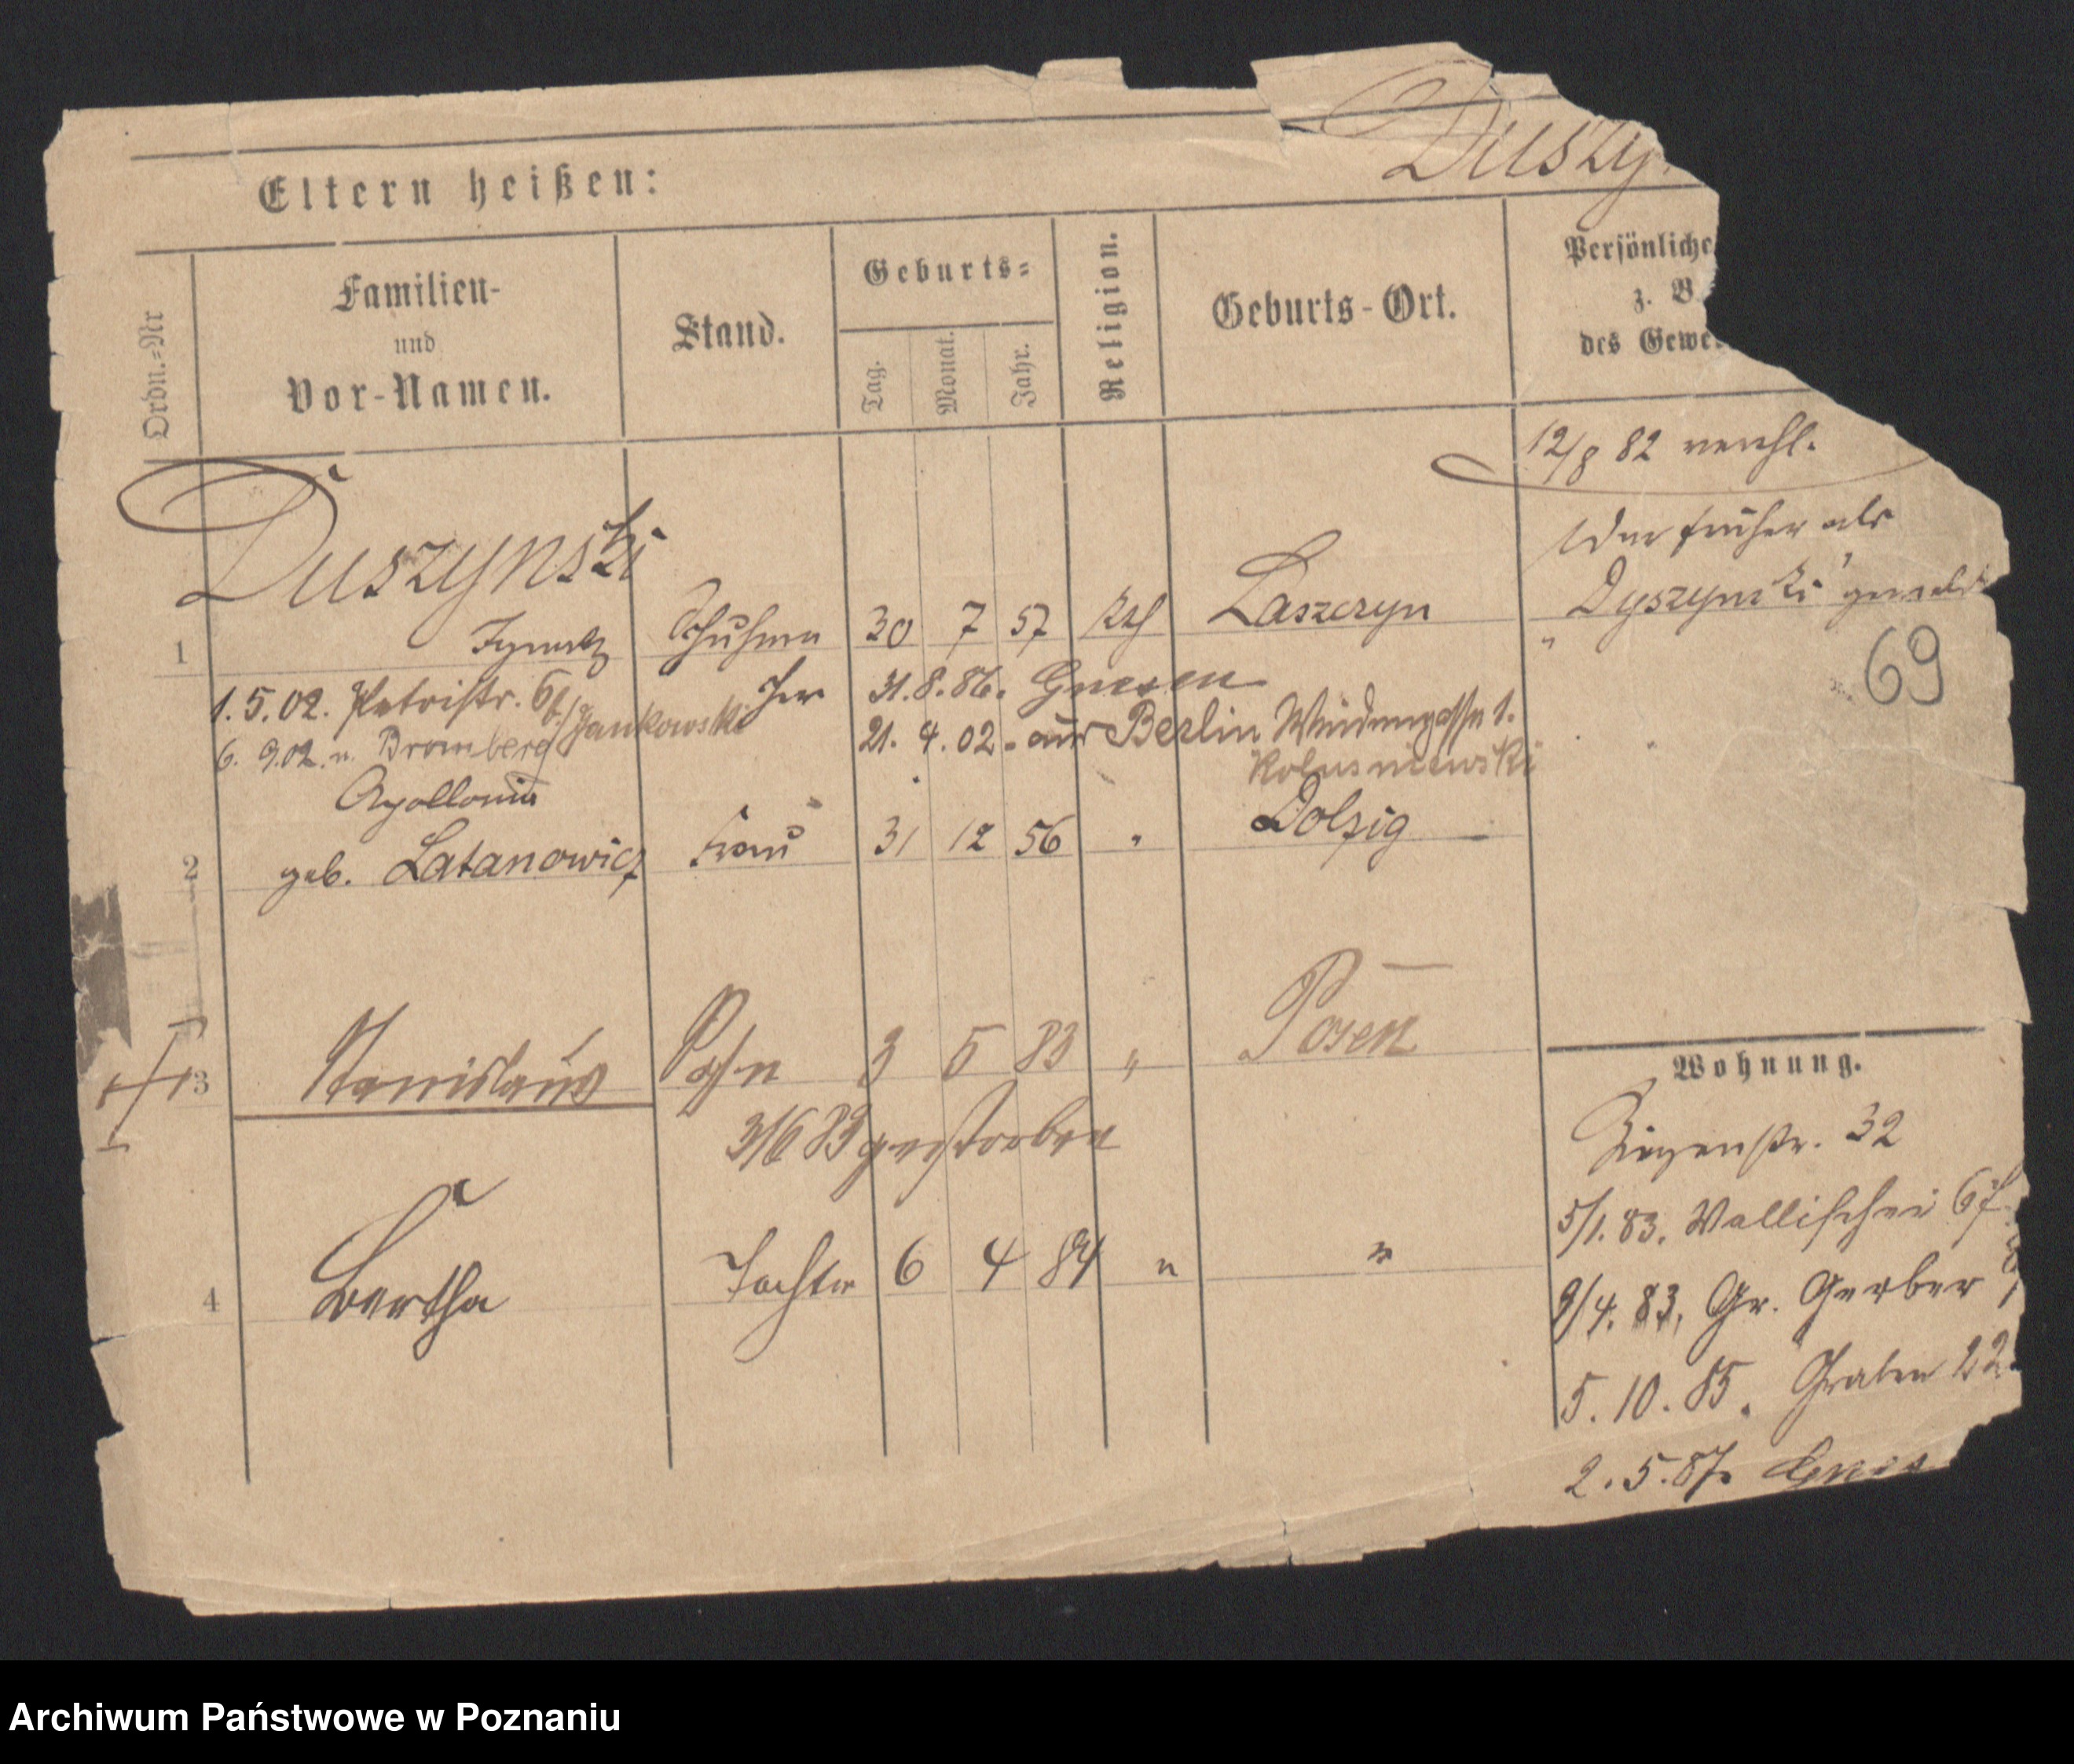 Duszy
Eltern heißen:
Ordn.-Nr
Familien-
und
Vor-Namen.
Stand.
Geburts-
Tag.
Monat.
Jahr.
Religion.
Geburts-Ort.
Persönliche
z. B.
des Gewe
12/8 82 verehl.
Duszynski
früher als
Dyszynski gemeldet
1 Ignatz Schuhma 30 7 57 kth Laszczyn "
cher 31.8.86. Gnesen
69
1.5.02. Petristr. 6 b/Jankowski
21.4.02. aus Berlin
6. 9.02. n. Bromberg
Apollonia
2 geb. Latanowicz Frau 31 12 56 " Dolzig
3 Stanislaus Sohn 3 5 83 " Posen
3/6 83 gestorben
4 Bertha Tochter 6 4 84 " "
Wohnung.
Ziegenstr. 32
5/1. 83. Wallischei 67
9/4. 83. Gr. Gerber
5. 10. 85. Graben 22
2. 5. 87. Gnes
Archiwum Państwowe w Poznaniu